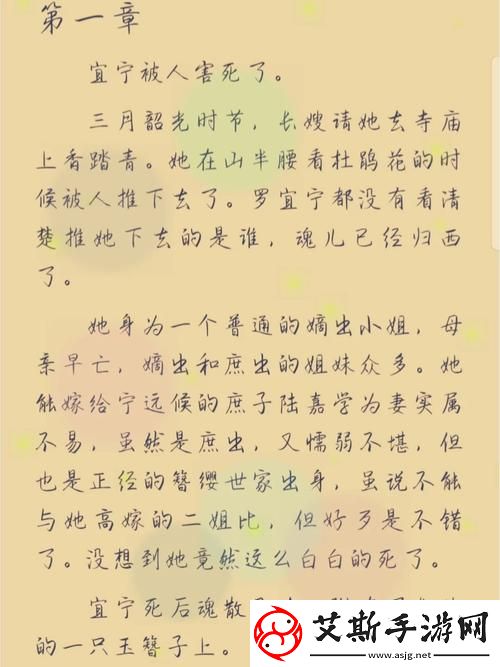 第一章
宜宁被人害死了。
三月韶光时节，长嫂请她去寺庙
上香踏青。她在山半腰看杜鹃花的时
候被人推下去了。罗宜宁都没有看清
楚推她下去的是谁，魂儿已经归西
了。
她身为一个普通的嫡出小姐，母
亲早亡，嫡出和庶出的姐妹众多。她
能嫁给宁远候的庶子陆嘉学为妻实属
不易，虽然是庶出，又懦弱不堪，但
也是正经的簪缨世家出身，虽说不能
与她高嫁的二姐比，但好歹是不错
了。没想到她竟然这么白白的死了。
宜宁死后魂散
的一只玉簪子上。
艾斯手游网
www.asjg.net